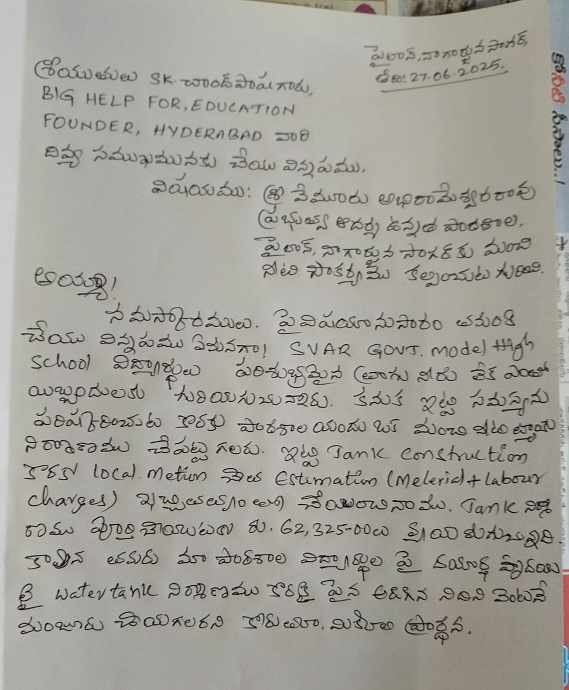 పైలాన్, నాగార్జున సాగర్,
తేది: 27.06.2025.
శ్రీయుతులు SK. చాంద్ పాషా గారు,
BIG HELP FOR, EDUCATION
FOUNDER, HYDERABAD వారి
దివ్య సముఖమునకు చేయు విన్నపము.
విషయము: శ్రీ వేమూరు అభిరామేశ్వరరావు
ప్రభుత్వ ఆదర్శ ఉన్నత పాఠశాల,
పైలాన్, నాగార్జున సాగర్ కు మంచి
నీటి సౌకర్యము కల్పించుట గురించి.
అయ్యా!
నమస్కారములు. పై విషయానుసారం తమరికి
చేయు విన్నపము ఏమనగా! SVAR GOVT. Model High
School విద్యార్థులు పరిశుభ్రమైన త్రాగు నీరు లేక ఎంతో
యిబ్బందులకు గురియగుచున్నారు. కనుక ఇట్టి సమస్యను
పరిష్కరించుట కొరకు పాఠశాల యందు ఒక మంచి నీటి ట్యాంకు
నిర్మాణము చేపట్ట గలరు. ఇట్టి Tank Construction
కొరకు local చేత Estimation (Meterial + labour
charges) చేయించినాము. Tank నిర్మా
ణము పూర్తి చేయుటకు రు. 62,325-00లు వ్యయ మగుచున్నది.
కావున తమరు మా పాఠశాల విద్యార్థుల పై దయార్ద్ర హృదయు
లై water tank నిర్మాణము కొరకై పైన అడిగిన నిధిని వెంటనే
మంజూరు చేయగలరని కోరుచూ, మిక్కిలి ప్రార్థన.